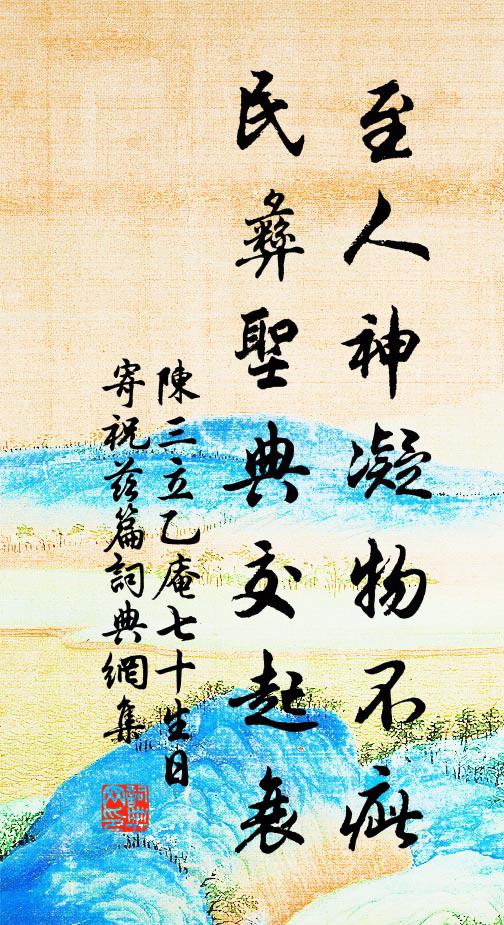 至人神凝物不疵
民彝聖典交起衰
陳三立乙庵七十生日
寄祝茲篇詞典網集